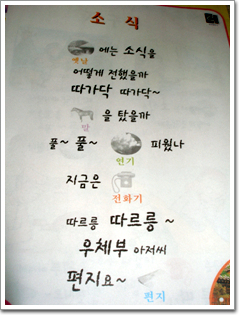 소 식
에는 소식을
옛날
어떻게 전했을까
따가닥 따가닥~
을 탔을까
말
풀~ 풀~ 피웠나
연기
지금은
전화기
따르릉 따르릉~
우체부 아저씨
편지요~
편지